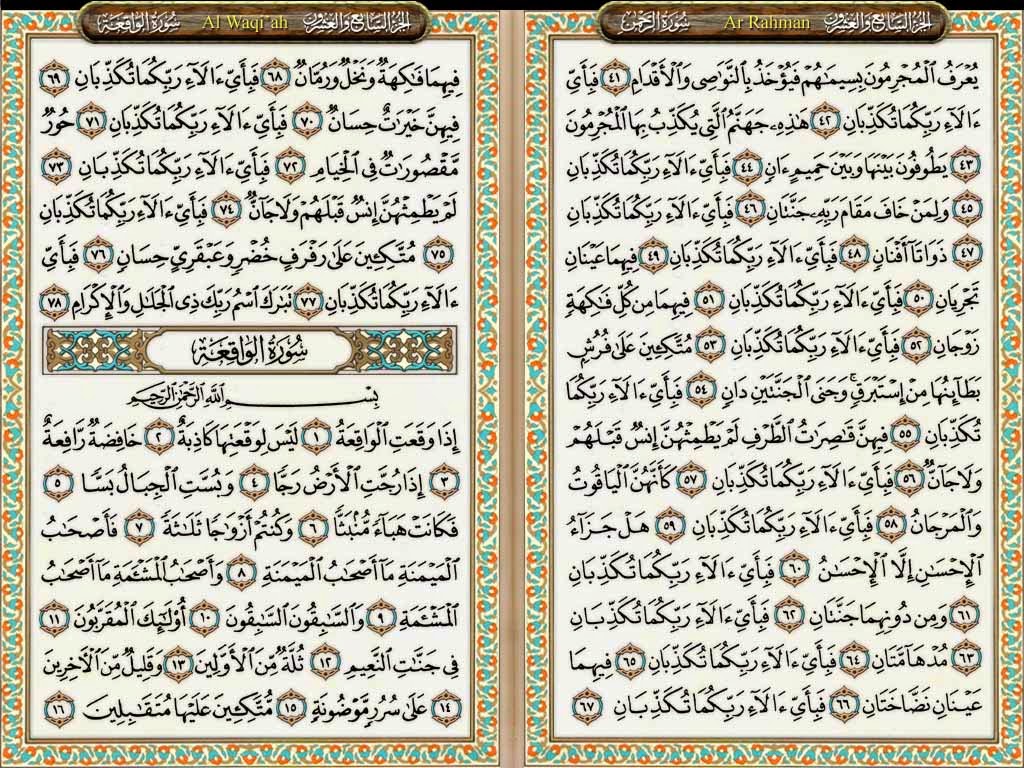 سُورَةُ الرَّحْمٰن Ar Rahman الجزء السابع والعشرون
يُعْرَفُ الْمُجْرِمُونَ بِسِيمَاهُمْ فَيُؤْخَذُ بِالنَّوَاصِي وَالْأَقْدَامِ ٤١ فَبِأَيِّ
ءَالَاءِ رَبِّكُمَا تُكَذِّبَانِ ٤٢ هَٰذِهِ جَهَنَّمُ الَّتِي يُكَذِّبُ بِهَا الْمُجْرِمُونَ
٤٣ يَطُوفُونَ بَيْنَهَا وَبَيْنَ حَمِيمٍ ءَانٍ ٤٤ فَبِأَيِّ ءَالَاءِ رَبِّكُمَا تُكَذِّبَانِ
٤٥ وَلِمَنْ خَافَ مَقَامَ رَبِّهِ جَنَّتَانِ ٤٦ فَبِأَيِّ ءَالَاءِ رَبِّكُمَا تُكَذِّبَانِ
٤٧ ذَوَاتَا أَفْنَانٍ ٤٨ فَبِأَيِّ ءَالَاءِ رَبِّكُمَا تُكَذِّبَانِ ٤٩ فِيهِمَا عَيْنَانِ
تَجْرِيَانِ ٥٠ فَبِأَيِّ ءَالَاءِ رَبِّكُمَا تُكَذِّبَانِ ٥١ فِيهِمَا مِن كُلِّ فَاكِهَةٍ
زَوْجَانِ ٥٢ فَبِأَيِّ ءَالَاءِ رَبِّكُمَا تُكَذِّبَانِ ٥٣ مُتَّكِئِينَ عَلَىٰ فُرُشٍ
بَطَائِنُهَا مِنْ إِسْتَبْرَقٍ ۚ وَجَنَى الْجَنَّتَيْنِ دَانٍ ٥٤ فَبِأَيِّ ءَالَاءِ رَبِّكُمَا
تُكَذِّبَانِ ٥٥ فِيهِنَّ قَاصِرَاتُ الطَّرْفِ لَمْ يَطْمِثْهُنَّ إِنسٌ قَبْلَهُمْ
وَلَا جَانٌّ ٥٦ فَبِأَيِّ ءَالَاءِ رَبِّكُمَا تُكَذِّبَانِ ٥٧ كَأَنَّهُنَّ الْيَاقُوتُ
وَالْمَرْجَانُ ٥٨ فَبِأَيِّ ءَالَاءِ رَبِّكُمَا تُكَذِّبَانِ ٥٩ هَلْ جَزَاءُ
الْإِحْسَانِ إِلَّا الْإِحْسَانُ ٦٠ فَبِأَيِّ ءَالَاءِ رَبِّكُمَا تُكَذِّبَانِ
٦١ وَمِن دُونِهِمَا جَنَّتَانِ ٦٢ فَبِأَيِّ ءَالَاءِ رَبِّكُمَا تُكَذِّبَانِ
٦٣ مُدْهَامَّتَانِ ٦٤ فَبِأَيِّ ءَالَاءِ رَبِّكُمَا تُكَذِّبَانِ ٦٥ فِيهِمَا
عَيْنَانِ نَضَّاخَتَانِ ٦٦ فَبِأَيِّ ءَالَاءِ رَبِّكُمَا تُكَذِّبَانِ ٦٧
سُورَةُ الْوَاقِعَة Al Waqi ah الجزء السابع والعشرون
فِيهِمَا فَاكِهَةٌ وَنَخْلٌ وَرُمَّانٌ ٦٨ فَبِأَيِّ ءَالَاءِ رَبِّكُمَا تُكَذِّبَانِ ٦٩
فِيهِنَّ خَيْرَاتٌ حِسَانٌ ٧٠ فَبِأَيِّ ءَالَاءِ رَبِّكُمَا تُكَذِّبَانِ ٧١ حُورٌ
مَّقْصُورَاتٌ فِي الْخِيَامِ ٧٢ فَبِأَيِّ ءَالَاءِ رَبِّكُمَا تُكَذِّبَانِ ٧٣
لَمْ يَطْمِثْهُنَّ إِنسٌ قَبْلَهُمْ وَلَا جَانٌّ ٧٤ فَبِأَيِّ ءَالَاءِ رَبِّكُمَا تُكَذِّبَانِ
٧٥ مُتَّكِئِينَ عَلَىٰ رَفْرَفٍ خُضْرٍ وَعَبْقَرِيٍّ حِسَانٍ ٧٦ فَبِأَيِّ
ءَالَاءِ رَبِّكُمَا تُكَذِّبَانِ ٧٧ تَبَارَكَ اسْمُ رَبِّكَ ذِي الْجَلَالِ وَالْإِكْرَامِ ٧٨
سُورَةُ الْوَاقِعَة
بِسْمِ اللَّهِ الرَّحْمَٰنِ الرَّحِيمِ
إِذَا وَقَعَتِ الْوَاقِعَةُ ١ لَيْسَ لِوَقْعَتِهَا كَاذِبَةٌ ٢ خَافِضَةٌ رَّافِعَةٌ
٣ إِذَا رُجَّتِ الْأَرْضُ رَجًّا ٤ وَبُسَّتِ الْجِبَالُ بَسًّا ٥
فَكَانَتْ هَبَاءً مُّنبَثًّا ٦ وَكُنتُمْ أَزْوَاجًا ثَلَاثَةً ٧ فَأَصْحَابُ
الْمَيْمَنَةِ مَا أَصْحَابُ الْمَيْمَنَةِ ٨ وَأَصْحَابُ الْمَشْئَمَةِ مَا أَصْحَابُ
الْمَشْئَمَةِ ٩ وَالسَّابِقُونَ السَّابِقُونَ ١٠ أُولَٰئِكَ الْمُقَرَّبُونَ ١١
فِي جَنَّاتِ النَّعِيمِ ١٢ ثُلَّةٌ مِّنَ الْأَوَّلِينَ ١٣ وَقَلِيلٌ مِّنَ الْآخِرِينَ
١٤ عَلَىٰ سُرُرٍ مَّوْضُونَةٍ ١٥ مُّتَّكِئِينَ عَلَيْهَا مُتَقَابِلِينَ ١٦